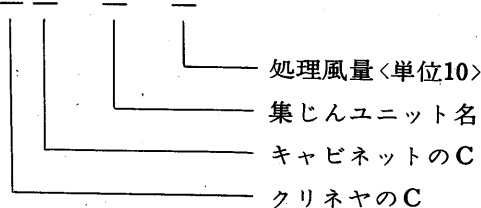 処理風量<単位10>
集じんユニット名
キャビネットのC
クリネヤのC